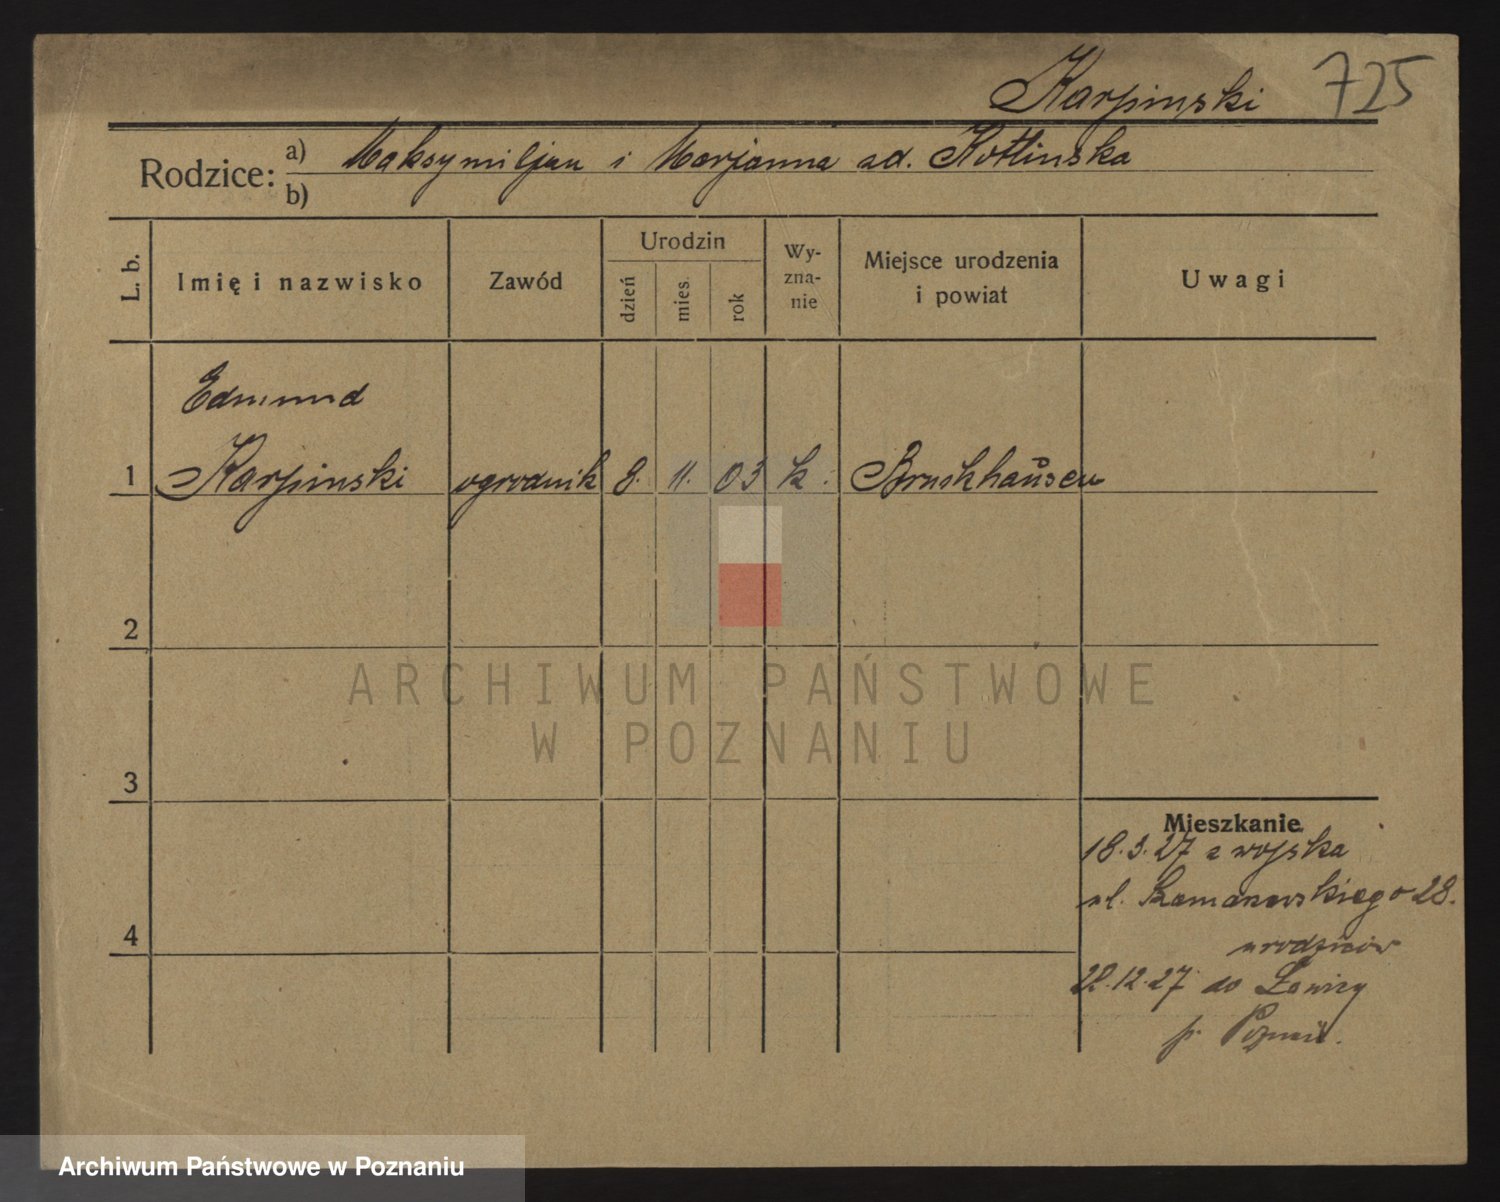 Karpinski 725
Rodzice: a) Maksymiljan i Marjanna zd. Kotlinska
b)
L. b. Imię i nazwisko Zawód Urodzin dzień mies. rok Wy-zna-nie Miejsce urodzenia i powiat Uwagi
Edmund
1 Karpinski ogrodnik 8. 11. 03 k. Bruckhausen
2
ARCHIWUM PAŃSTWOWE
W POZNANIU
3
Mieszkanie
18.3.27 z wojska
ul. 28.
4
u rodziców
22.12.27 do Ławicy
p. Poznań.
Archiwum Państwowe w Poznaniu